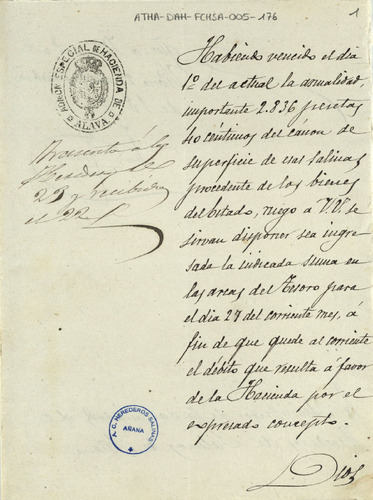 ATHA-DAH-FCHSA-005-176
1
ADMON ESPECIAL DE HACIENDA DE
ALAVA
Habiendo vencido el dia
1º del actual la anualidad,
importante 2.836 pesetas
40 céntimos del cánon de
superficie de esas Salinas
procedente de los bienes
del Estado, ruego a V.V. se
sirvan disponer sea ingre-
sada la indicada suma en
las arcas del Tesoro para
el dia 27 del corriente mes, á
fin de que quede al corriente
el débito que resulta á favor
de la Hacienda por el
expresado concepto.
Dios
23 y recibida
el 22
A. C. HEREDEROS SALINAS
AÑANA